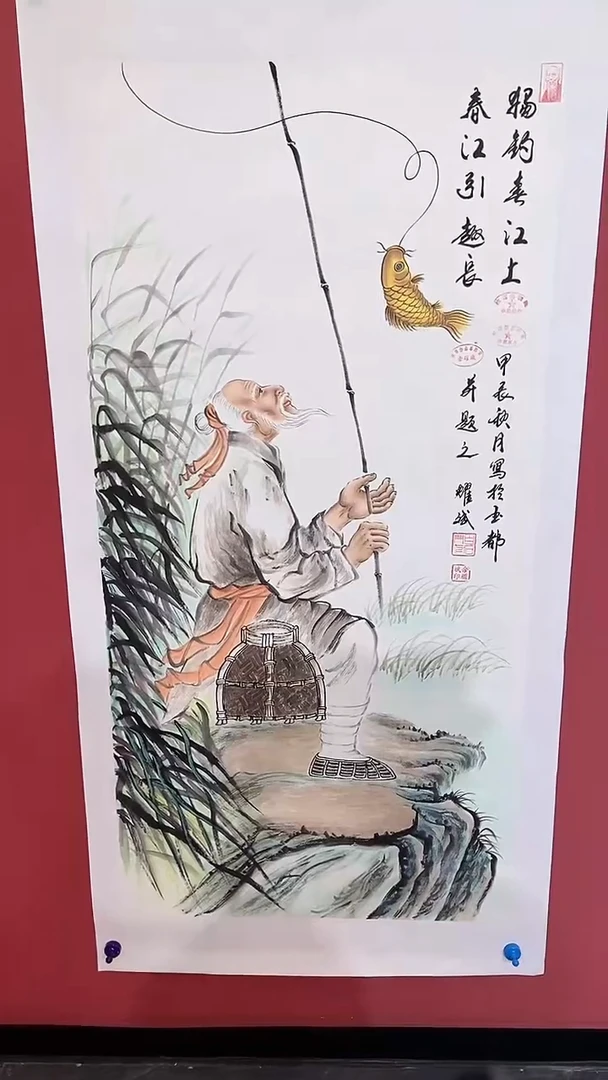 獨钓春江上
春江引趣長
甲辰秋月寫於玉都
并题之 耀斌